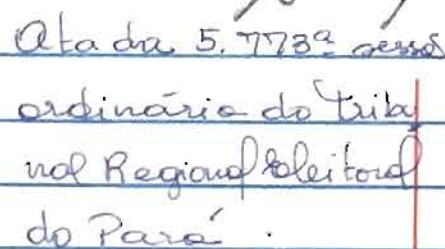 Ata da 5.773ª sessão
ordinária do Tribu
nal Regional Eleitoral
do Pará.